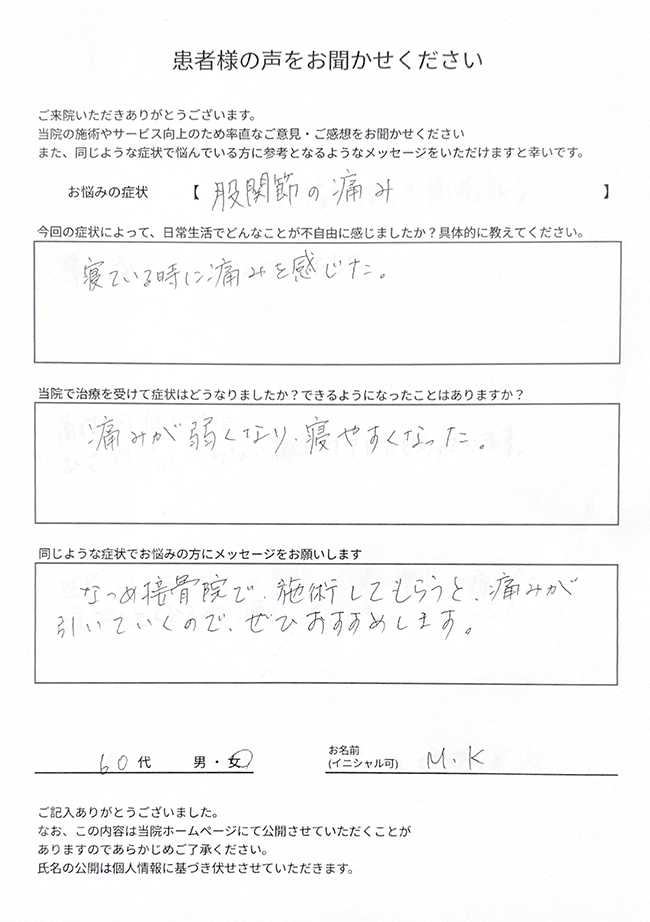 患者様の声をお聞かせください
ご来院いただきありがとうございます。
当院の施術やサービス向上のため率直なご意見・ご感想をお聞かせください
また、同じような症状で悩んでいる方に参考となるようなメッセージをいただけますと幸いです。
お悩みの症状 【 股関節の痛み 】
今回の症状によって、日常生活でどんなことが不自由に感じましたか？具体的に教えてください。
寝ている時に痛みを感じた。
当院で治療を受けて症状はどうなりましたか？できるようになったことはありますか？
痛みが弱くなり、寝やすくなった。
同じような症状でお悩みの方にメッセージをお願いします
なつめ接骨院で、施術してもらうと、痛みが
引いていくので、ぜひおすすめします。
60代 男・女
お名前
(イニシャル可) M.K
ご記入ありがとうございました。
なお、この内容は当院ホームページにて公開させていただくことが
ありますのであらかじめご了承ください。
氏名の公開は個人情報に基づき伏せさせていただきます。